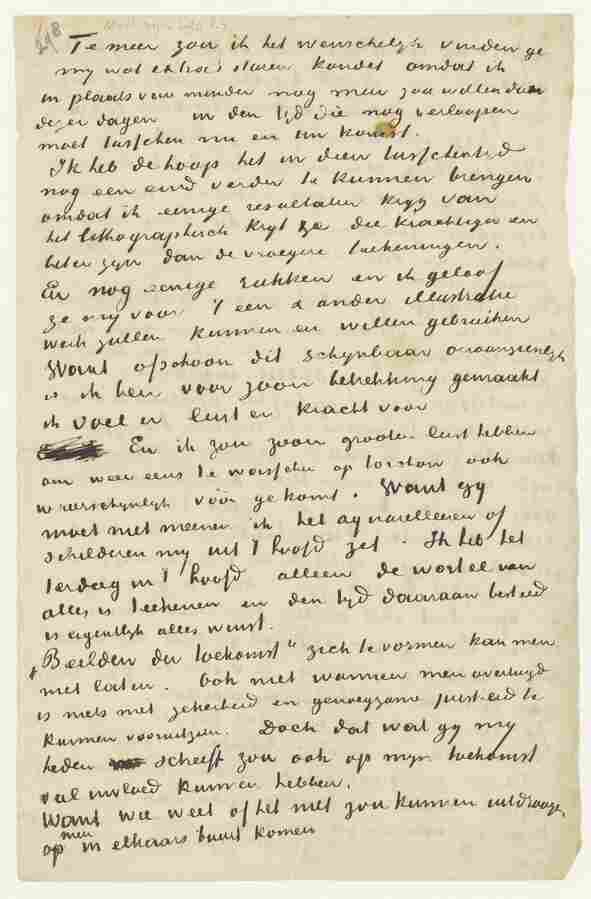 298
Temeer zou ik het wenschelijk vinden ge
mij wat extra's sturen kondet omdat ik
in plaats van minder nog meer zou willen doen
dezer dagen in den tijd die nog verloopen
moet tusschen nu en Uw komst.
Ik heb de hoop het in dien tusschentijd
nog een eind verder te kunnen brengen
omdat ik eenige resultaten krijg van
het lithographisch krijt ze die krachtiger en
beter zijn dan de vroegere teekeningen.
En nog eenige rukken en ik geloof
ze mij voor 't een & ander illustratie
werk zullen kunnen en willen gebruiken
Want ofschoon dit schijnbaar onaanzienlijk
is ik ben voor zoon betrekking gemaakt
ik voel er lust en kracht voor
En ik zou zoon grooten lust hebben
om weer eens te wasschen op torchon ook
waarschijnlijk vóór ge komt. Want gij
moet niet meenen ik het aquarelleeren of
schilderen mij uit 't hoofd zet. Ik heb het
terdeeg in 't hoofd alleen de wortel van
alles is teekenen en den tijd daaraan besteed
is eigentlijk alles winst.
„Beelden der toekomst" zich te vormen kan men
niet laten. Ook niet wanneer men overtuigd
is niets met zekerheid en genoegzame juistheid te
kunnen vooruitzien. Doch dat wat gij mij
heden schreeft zou ook op mijn toekomst
veel invloed kunnen hebben.
Want wie weet of het niet zou kunnen uitdraaijen
men
op in elkaars buurt komen